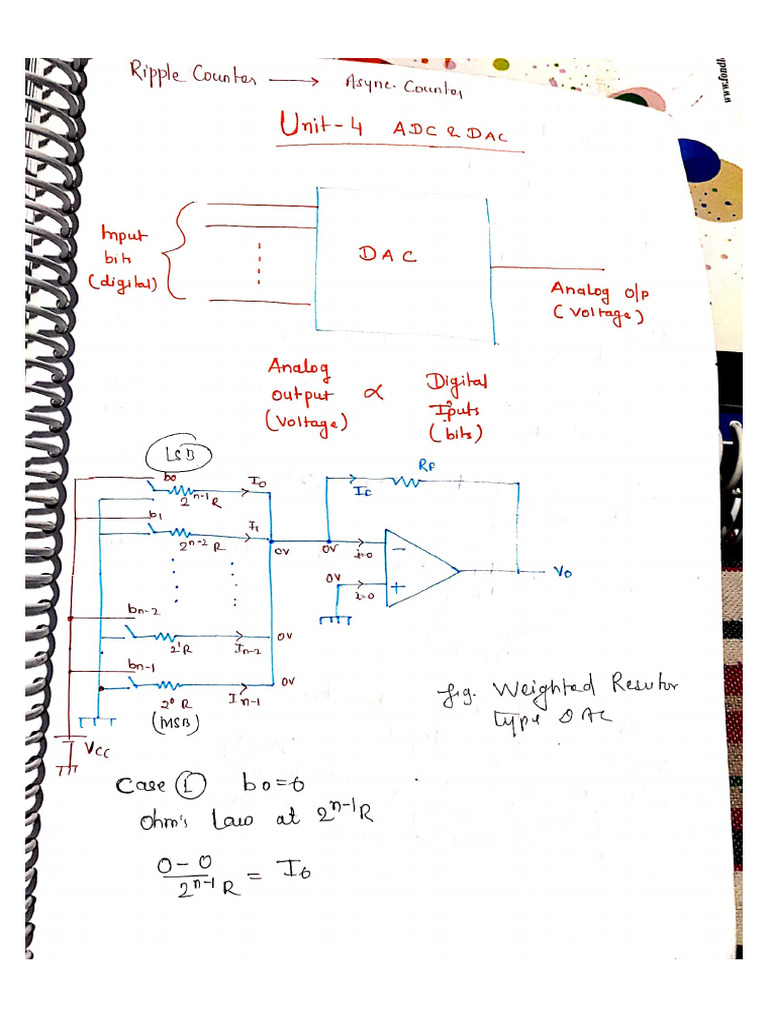 Ripple Counter → Async. Counter
www.fondl
Unit-4 ADC & DAC
Input
bits
(digital)
DAC
Analog O/P
(Voltage)
Analog
output
(Voltage)
∝
Digital
Inputs
(bits)
LSB
b0
I0
2^n-1 R
b1
I1
2^n-2 R
0V
0V
i=0
0V
i=0
RF
IF
−
+
V0
bn-2
2^1 R
In-2
0V
bn-1
2^0 R
In-1
0V
(MSB)
VCC
fig. Weighted Resistor
type DAC
Case 1 b0=0
ohm's Law at 2^n-1 R
0-0 / 2^n-1 R = I0